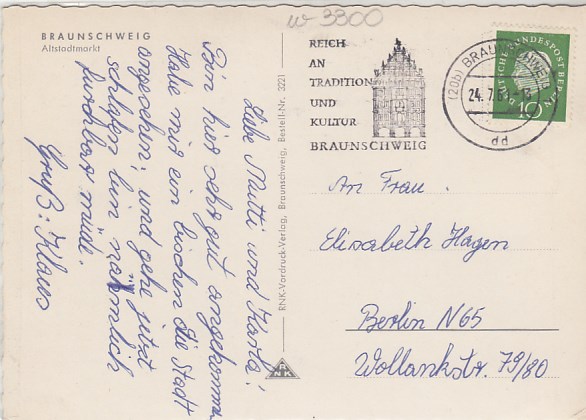 w 3300
BRAUNSCHWEIG
Altstadtmarkt
Liebe Mutti und Karla!
Bin hier sehr gut angekommen
Habe mir ein bischen die Stadt
angesehen; und gehe jetzt
schlafen bin nähmlich
furchtbar müde.
Gruß: Klaus
RNK-Vordruck-Verlag, Braunschweig, Bestell-Nr. 3221
RNK
REICH
AN
TRADITION
UND
KULTUR
BRAUNSCHWEIG
(20b) BRAUNSCHWEIG
24.7.6
dd
DEUTSCHE BUNDESPOST BERLIN
10
An Frau
Elisabeth Hagen
Berlin N65
Wollankstr. 79/80